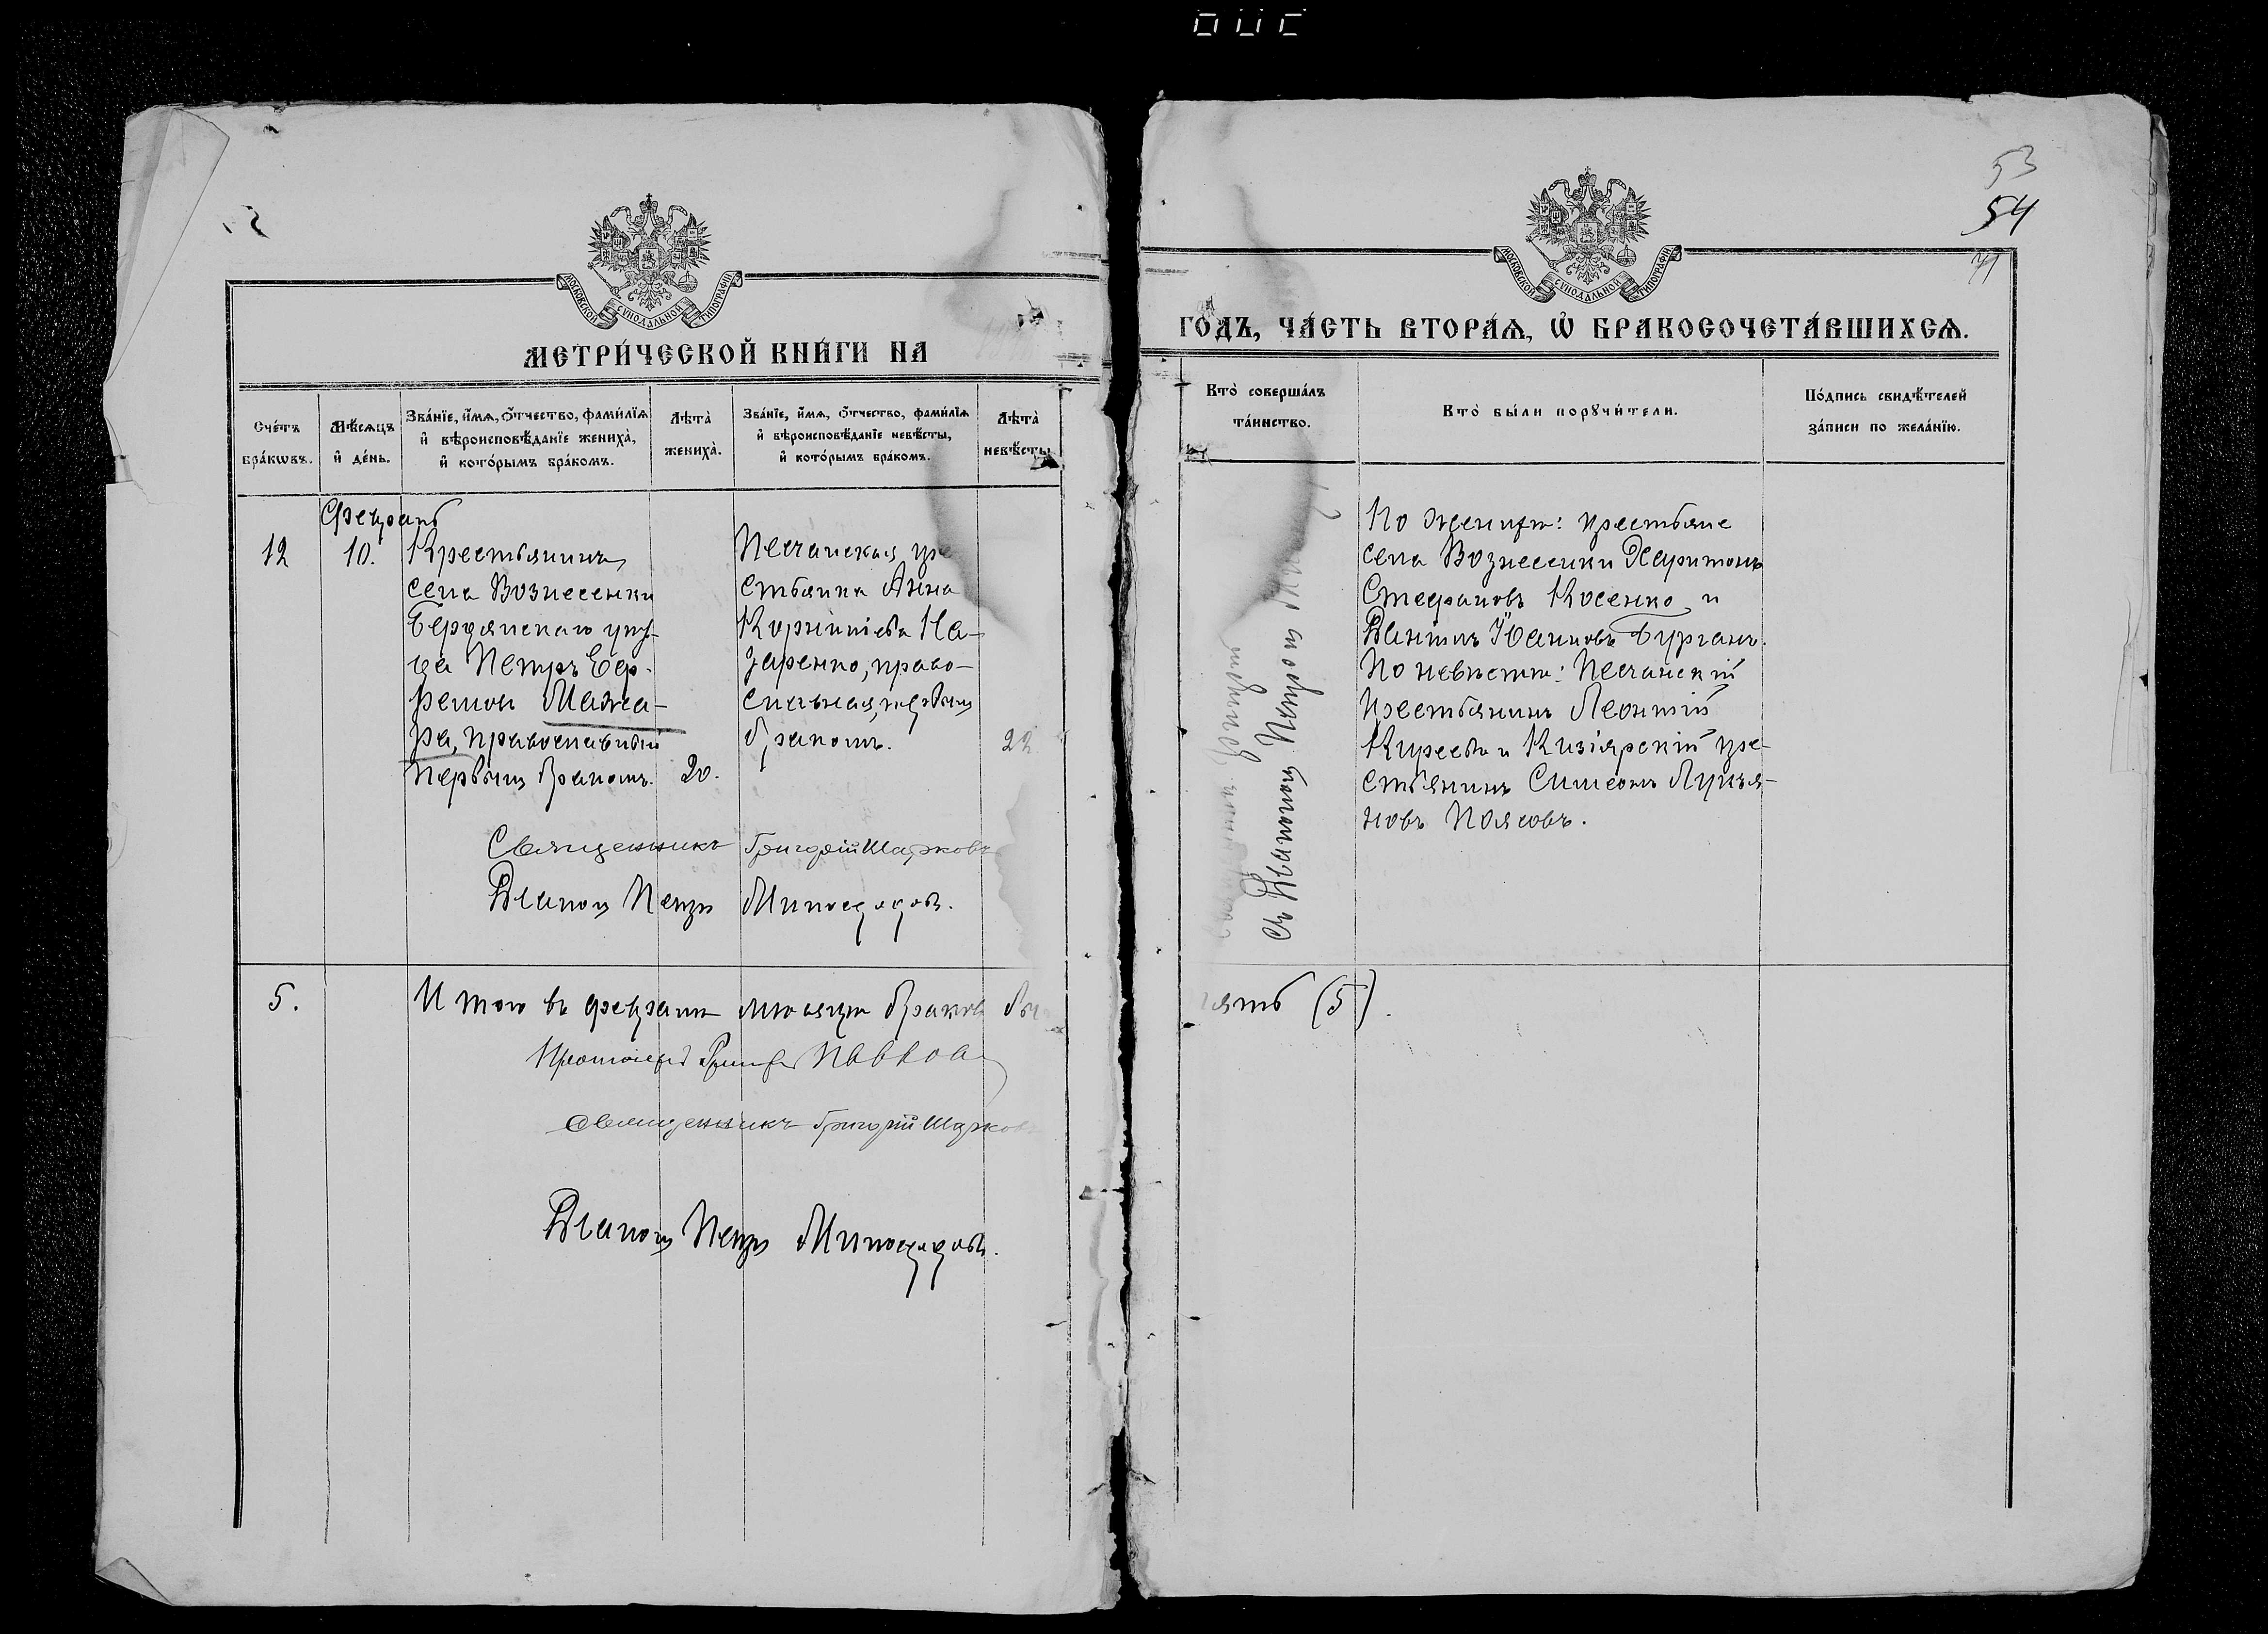 53
54
МОСКОВСКОЙ СѴНОДАЛЬНОЙ ТИПОГРАФІИ
МОСКОВСКОЙ СѴНОДАЛЬНОЙ ТИПОГРАФІИ
МЕТРИ́ЧЕСКОЙ КНИ́ГИ НА
ГО́ДЪ, ЧА́СТЬ ВТОРА́Ѧ, Ѽ БРАКОСОЧЕТА́ВШИХСѦ.
Сче́тъ
бра́кѡвъ.
Мѣ́сѧцъ
и҆ де́нь.
Зва́нїе, и҆́мѧ, ѻ҆́тчество, фами́лїѧ
и҆ вѣроисповѣ́данїе жениха̀,
и҆ кото́рымъ бра́комъ.
Лѣ́та̀
жениха̀.
Зва́нїе, и҆́мѧ, ѻ҆́тчество, фами́лїѧ
и҆ вѣроисповѣ́данїе невѣ́сты,
и҆ кото́рымъ бра́комъ.
Лѣ́та̀
невѣ́сты
Кто̀ соверша́лъ
та́инство.
Кто̀ бы́ли порꙋчи́тели.
По́дпись свидѣ́телей
за́писи по жела́нїю.
Февраль
12
10.
Крестьянинъ
села Вознесенки
Бердянскаго уѣз-
да Петръ Еф-
ремовъ Мажа-
ра, православный
первымъ бракомъ.
20.
Песчанская кре
стьянка Анна
Корнилiева На-
заренко, право-
славная, первымъ
бракомъ.
22
съ Діакономъ Петромъ
По женихѣ: крестьяне
села Вознесенки Харитонъ
Стефановъ Косенко и
Іоанновъ Бурганъ.
По невѣстѣ: Песчанскій
крестьянинъ Леонтій
Кирѣевъ и Кизіярскій кре-
стьянинъ Симеонъ Лукья-
новъ Поляковъ.
Священникъ Григорій Шарковъ
Діаконъ Петръ Милосердовъ.
5.
Итого въ февралѣ мѣсяцѣ браковъ бы
ять (5).
Протоіерей
Священникъ Григорій Шарков
Діаконъ Петръ Милосердовъ.